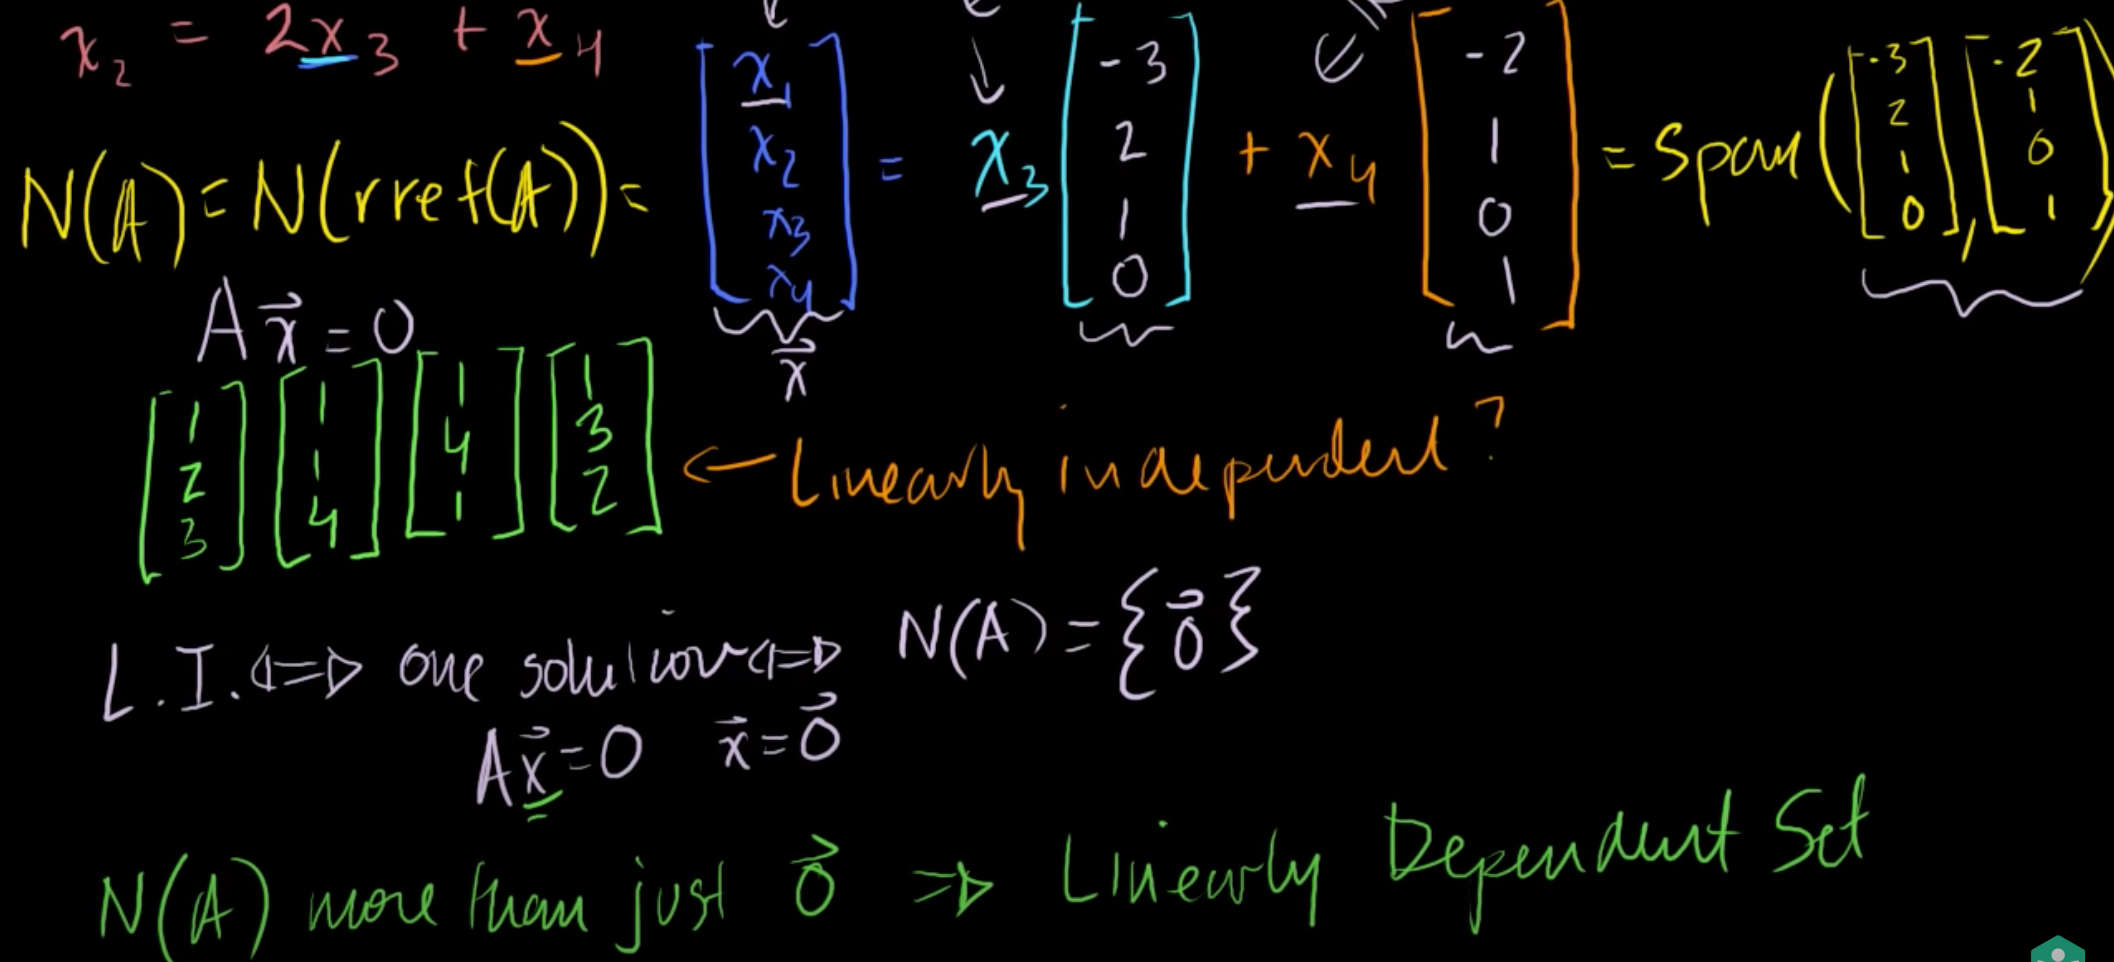 x₂ = 2x₃ + x₄
N(A) = N(rref(A)) = [x₁ x₂ x₃ x₄] = x₃ [-3 2 1 0] + x₄ [-2 1 0 1] = Span([-3 2 1 0], [-2 1 0 1])
Ax⃗ = 0
x⃗
[1 2 3] [1 1 4] [1 4 1] [1 3 2] ← Linearly independent?
L.I. ⇔ one solution ⇔ N(A) = {0⃗}
Ax⃗ = 0 x⃗ = 0⃗
N(A) more than just 0⃗ ⇒ Linearly Dependent Set